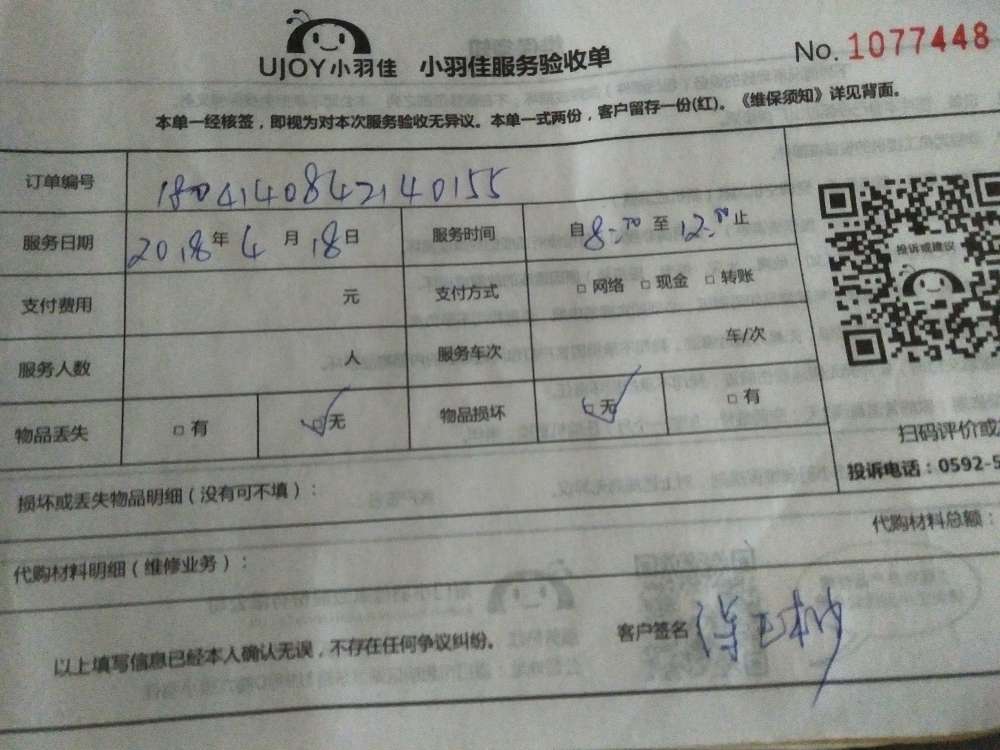 UJOY小羽佳 小羽佳服务验收单 No. 1077448
本单一经核签，即视为对本次服务验收无异议。本单一式两份，客户留存一份(红)。《维保须知》详见背面。
订单编号 1804140842140155
服务日期 2018年4月18日 服务时间 自8:30至12:30止
支付费用 元 支付方式 □网络 □现金 □转账
服务人数 人 服务车次 车/次
物品丢失 □有 ☑无 物品损坏 ☑无 □有
投诉或建议
扫码评价或
投诉电话：0592-5
损坏或丢失物品明细（没有可不填）：
代购材料总额：
代购材料明细（维修业务）：
以上填写信息已经本人确认无误，不存在任何争议纠纷。 客户签名